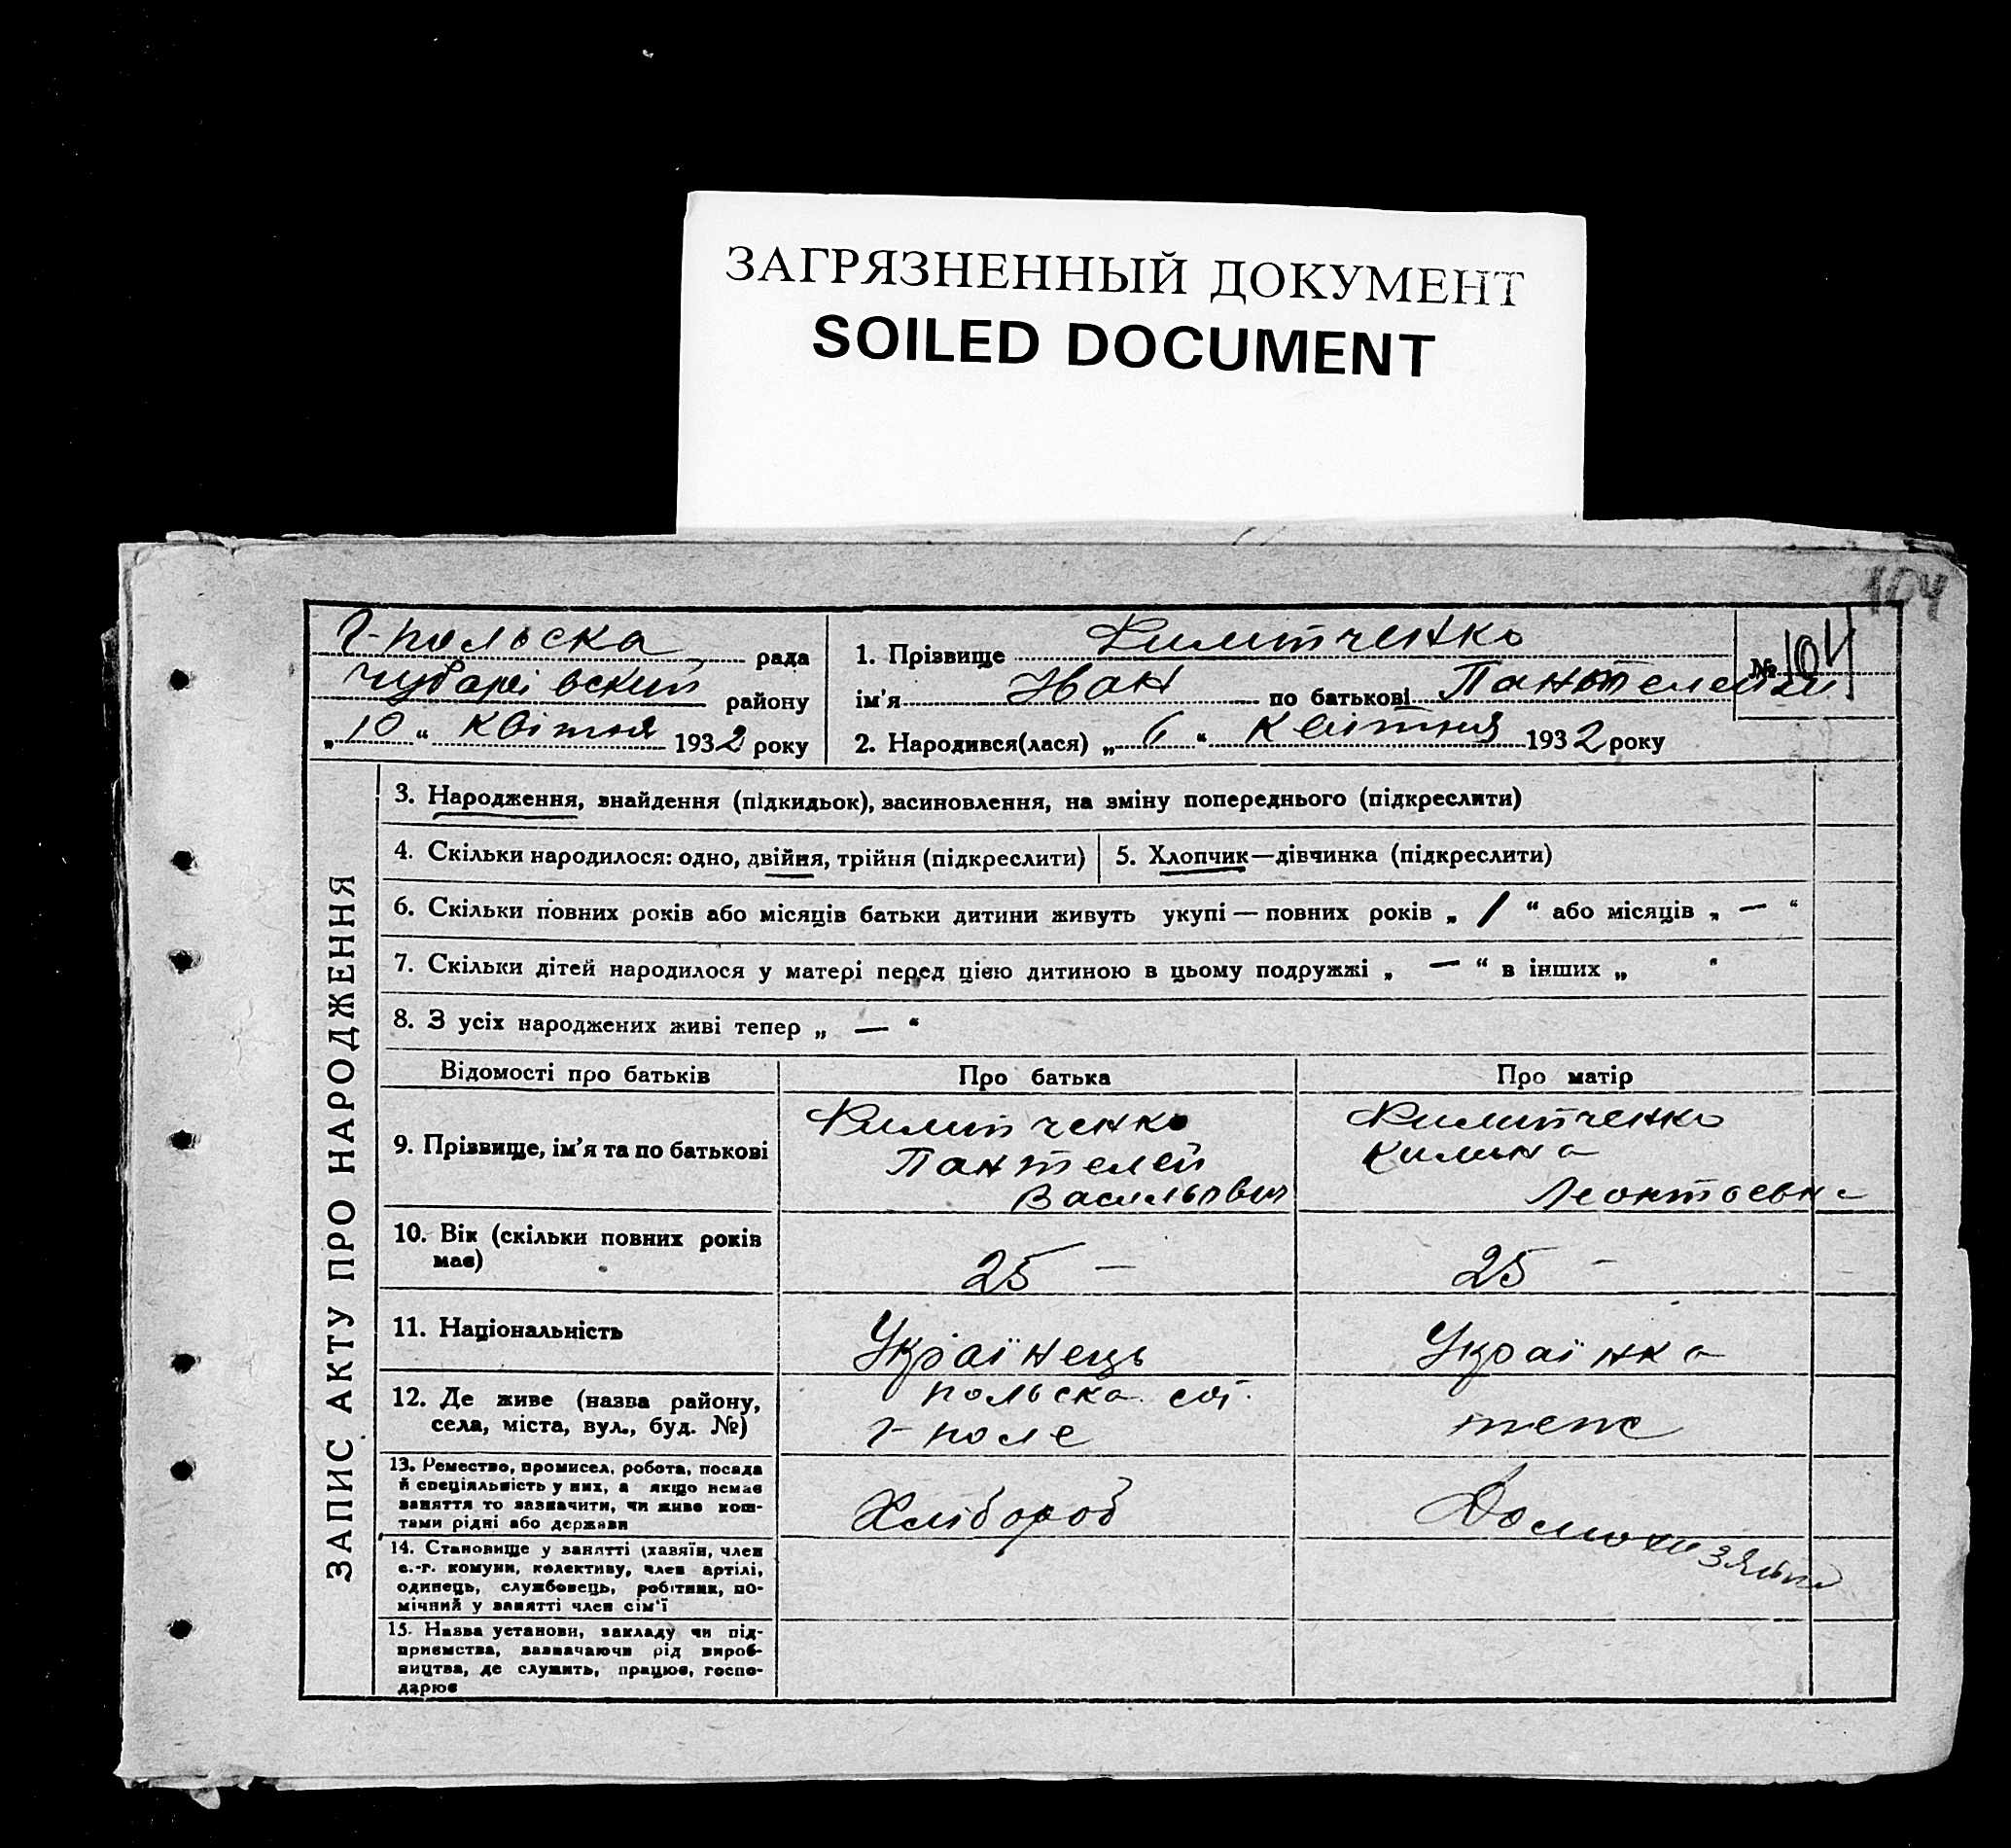 ЗАГРЯЗНЕННЫЙ ДОКУМЕНТ
SOILED DOCUMENT
104
Г-польска рада
Чубарівский району
„10“ Квітня 1932 року
1. Прізвище
ім'я Иван по батькові
№ 104
2. Народився(лася) „6“ Квітня 1932 року
ЗАПИС АКТУ ПРО НАРОДЖЕННЯ
3. Народження, знайдення (підкидьок), засиновлення, на зміну попереднього (підкреслити)
4. Скільки народилося: одно, двійня, трійня (підкреслити)
5. Хлопчик—дівчинка (підкреслити)
6. Скільки повних років або місяців батьки дитини живуть укупі — повних років „ / “ або місяців „ — “
7. Скільки дітей народилося у матері перед цією дитиною в цьому подружжі „ — “ в інших „ “
8. З усіх народжених живі тепер „ — “
Відомості про батьків Про батька Про матір
9. Прізвище, ім'я та по батькові
Пантелей
Васильович
Килина
Леонтоевна
10. Вік (скільки повних років має)
25 —
25 —
11. Національність
Українець
Українка
12. Де живе (назва району, села, міста, вул., буд. №)
польска
г-поле
теж
13. Ремество, промисел, робота, посада
й спеціяльність у них, а якщо немає
заняття то зазначити, чи живе кош-
тами рідні або держави
Хлібороб
14. Становище у занятті (хавяїн, член
с.-г. комуни, колективу, член артілі,
одинець, службовець, робітник, по-
мічний у занятті член сім'ї
15. Назва установи, закладу чи під-
приємства, зазначаючи рід вироб-
ництва, де служить, працює, госпо-
дарює